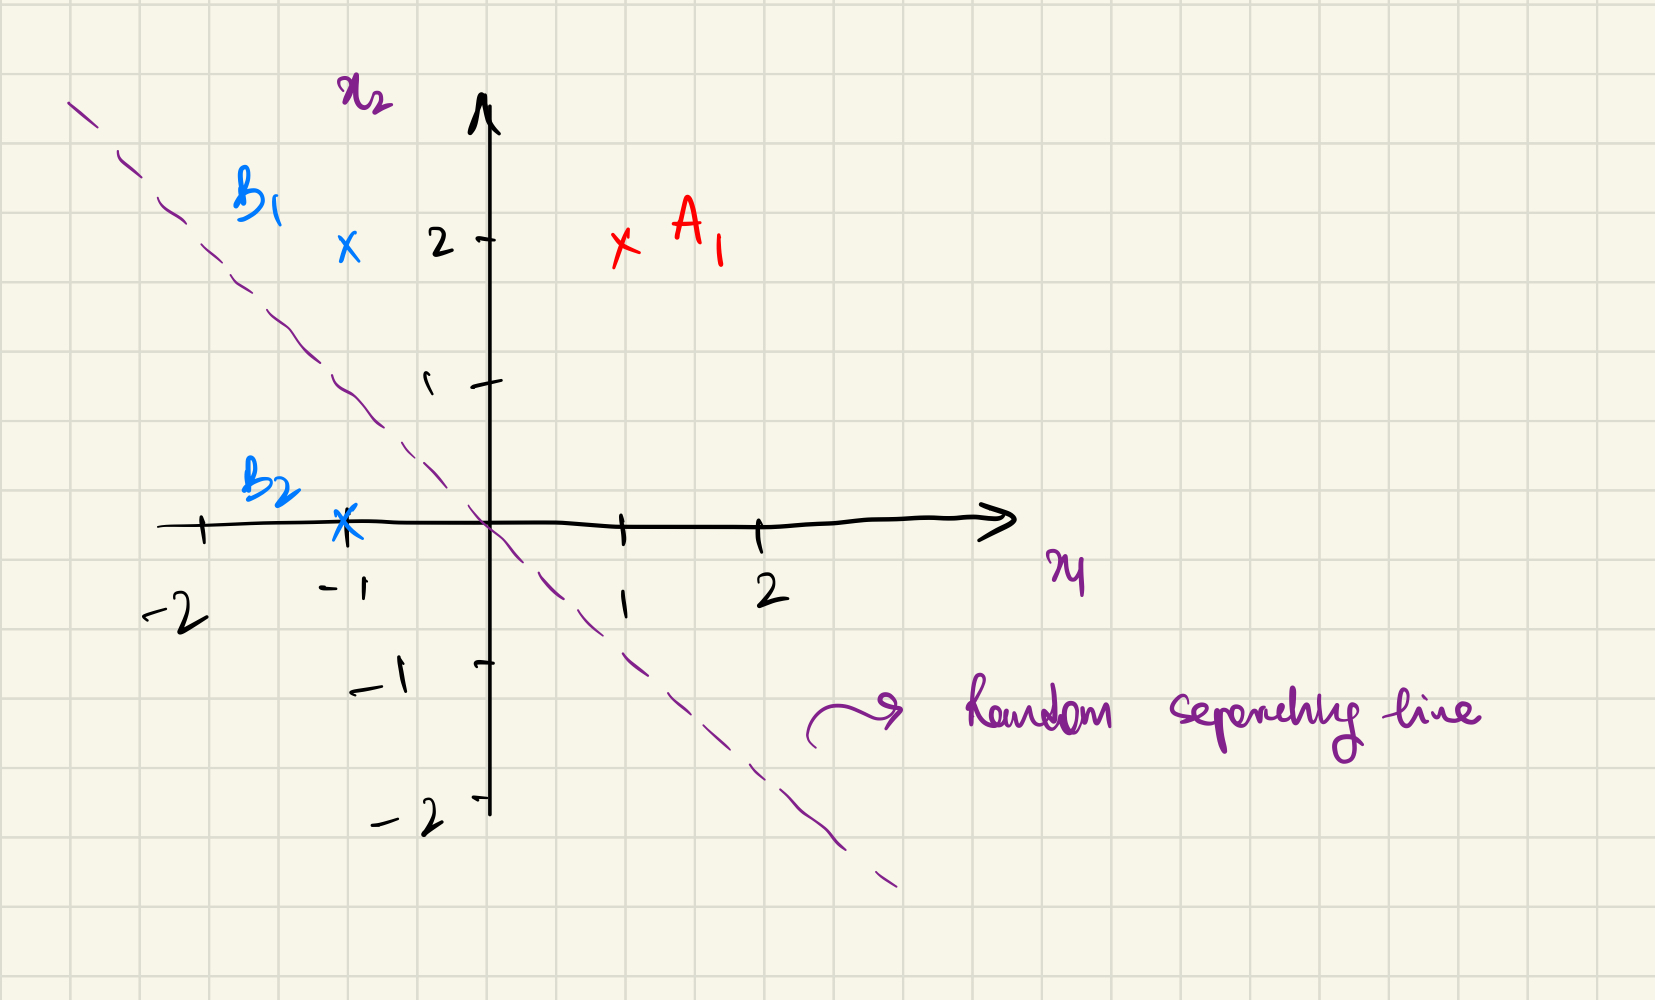 x₂
B₁
2
A₁
1
B₂
-2
-1
1
2
x₁
-1
Random separating line
-2